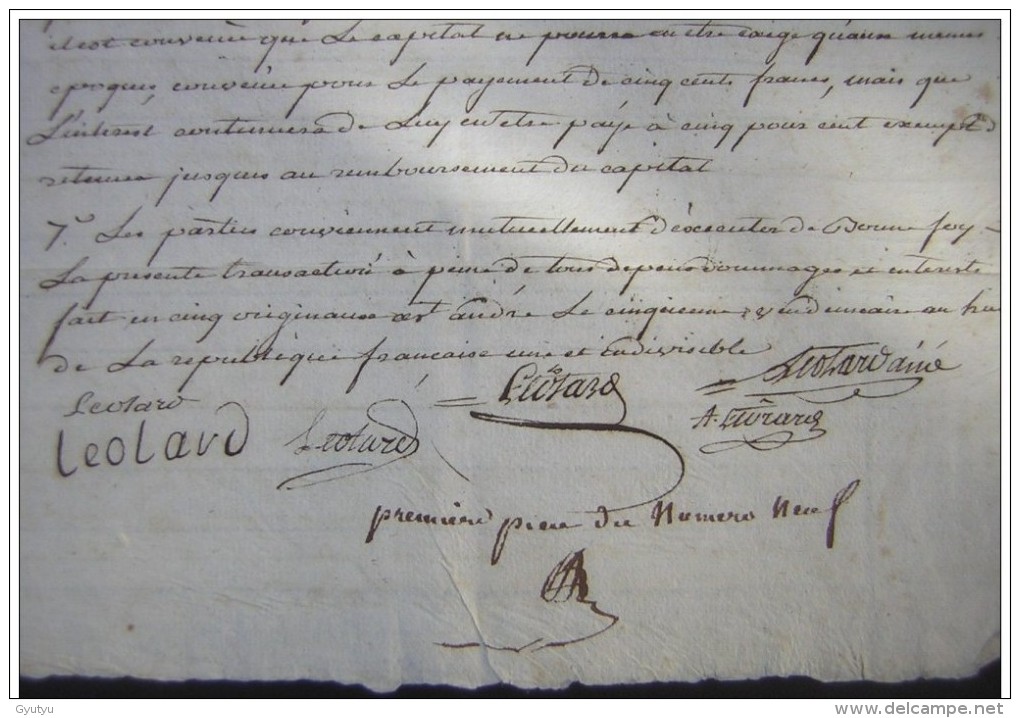 il est convenu que le capital ne pourra en etre exigé qu'aux memes
epoques, convenu pour le payement de cinq cents francs, mais que
L'interest continuera de luy en etre payé à cinq pour cent exempt de
retenue jusques au remboursement du capital
7.° Les parties conviennent mutuellement d'éxecuter de Bonne foy
La presente transaction à peine de tous depens dommages et interets
fait en cinq originaux a st andré Le cinquieme vendemiaire an huit
de La republique francaise une et indivisible
Leotard Leotard Leotard ainé
Leotard Leotard A.
premiere piece du Numero Neuf
Gyutyu
www.delcampe.net